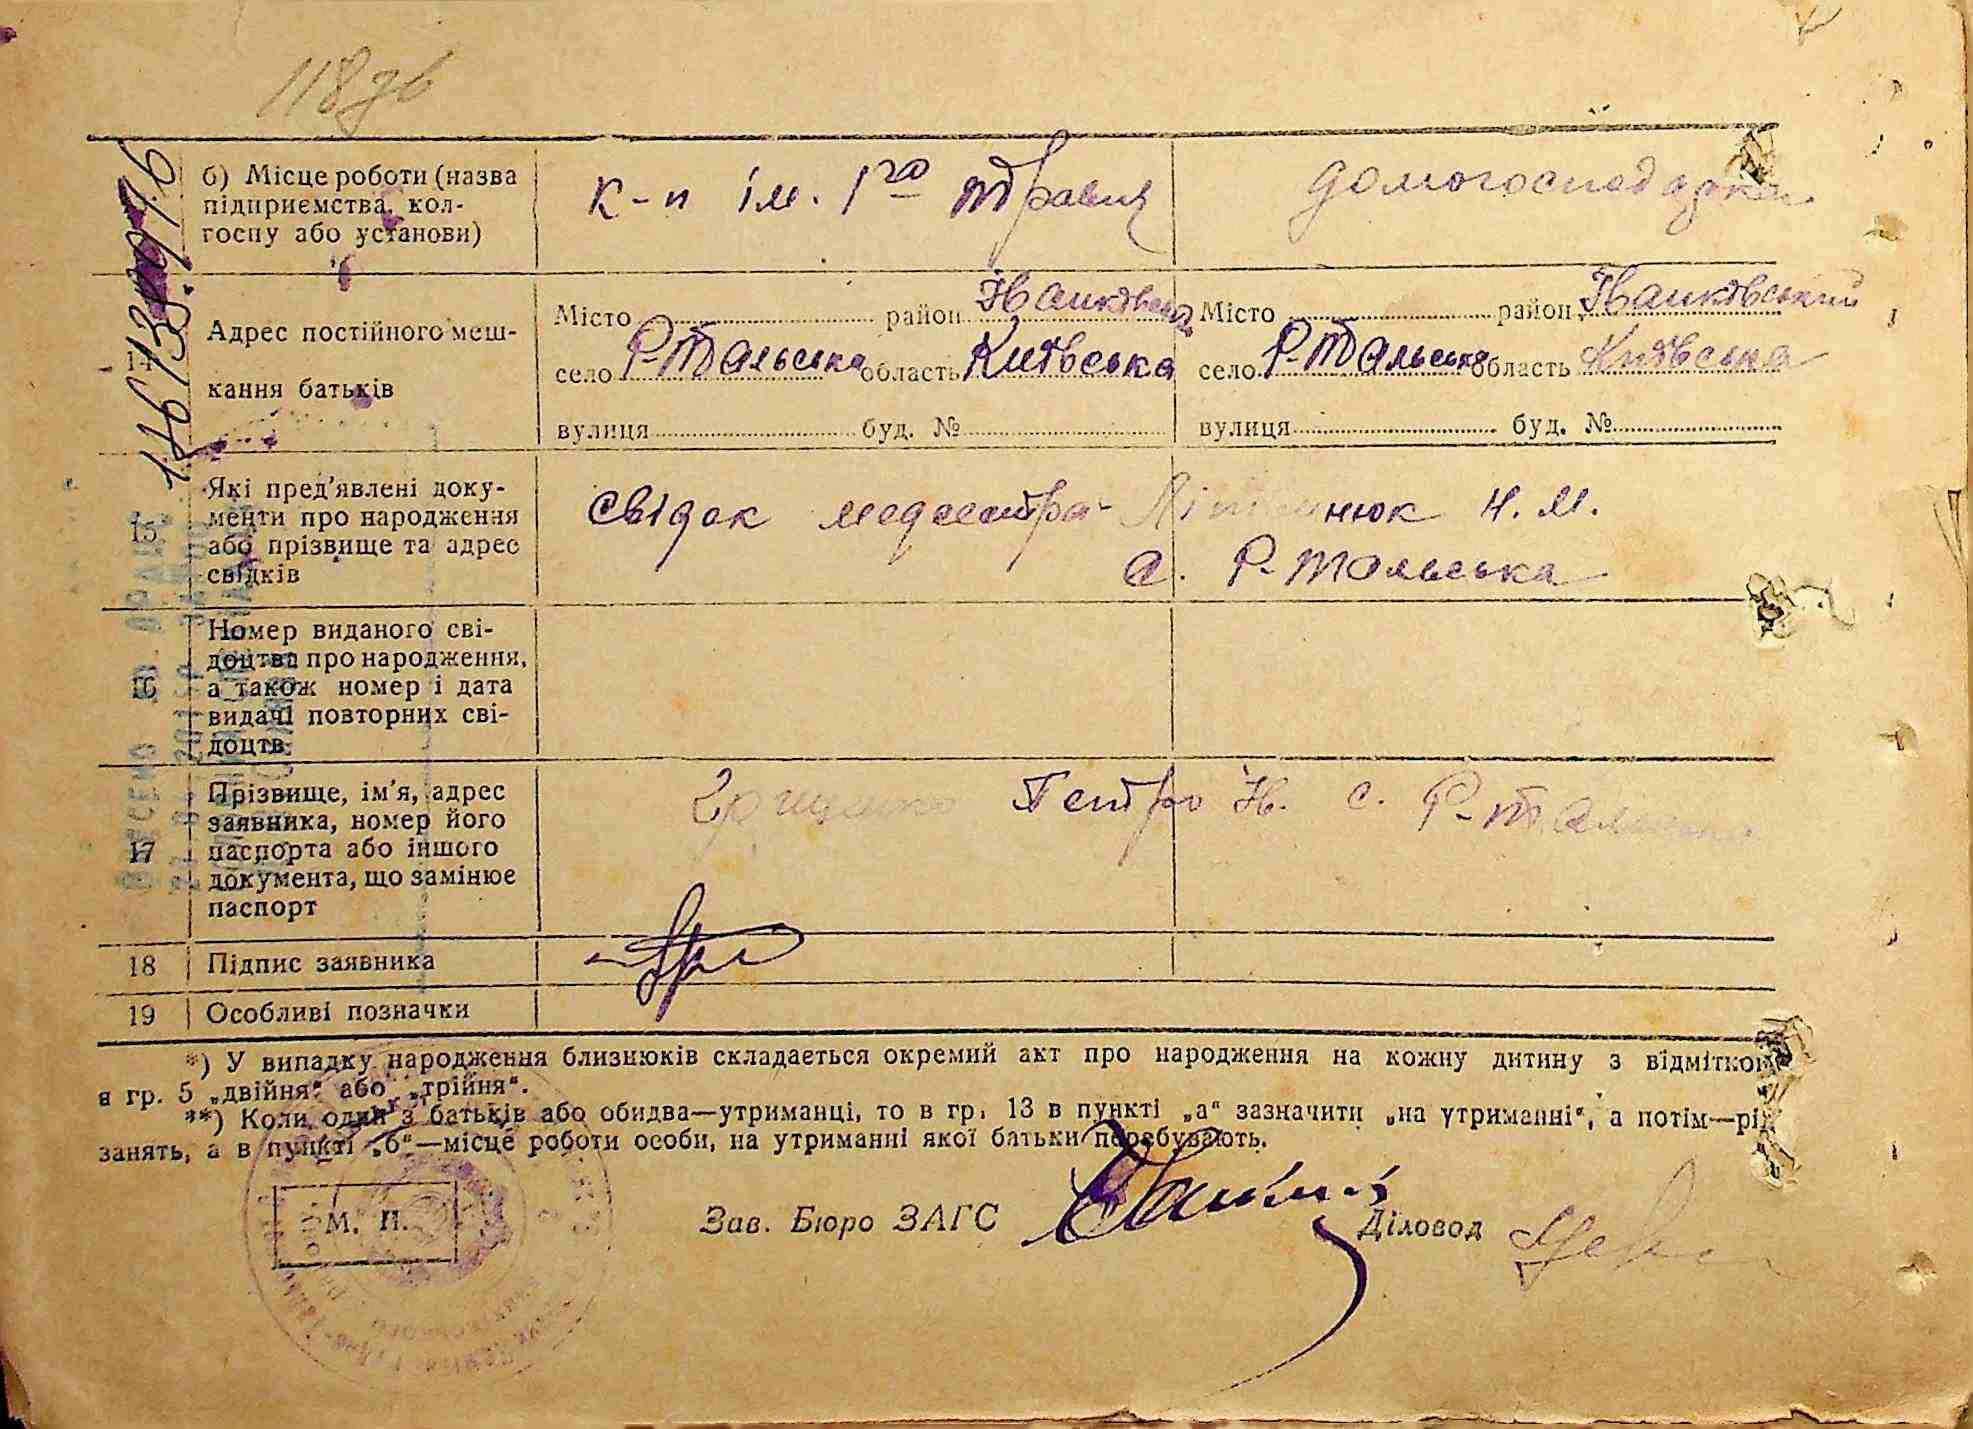 118 зв
б) Місце роботи (назва
підприємства, кол-
госпу або установи)
к-п ім. 1го травня
домогосподарка
14
Адрес постійного меш-
кання батьків
Місто район Іванківськ
село Р-Тальська область Київська
вулиця буд. №
Місто район Іванківський
село Р-Тальськ область Київська
вулиця буд. №
15
Які пред'явлені доку-
менти про народження
або прізвище та адрес
свідків
Свідок медсестра- Н. М.
с. Р-Тальська
16
Номер виданого сві-
доцтва про народження,
а також номер і дата
видачі повторних сві-
доцтв
17
Прізвище, ім'я, адрес
заявника, номер його
паспорта або іншого
документа, що замінює
паспорт
Грищенко Петро Ів. с. Р-Тальська
18 Підпис заявника
19 Особливі позначки
*) У випадку народження близнюків складається окремий акт про народження на кожну дитину з відміткою
в гр. 5 „двійня“ або „трійня“.
**) Коли один з батьків або обидва—утриманці, то в гр. 13 в пункті „а“ зазначити „на утриманні“, а потім—рід
занять, а в пункті „б“—місце роботи особи, на утриманні якої батьки перебувають.
М. П.
Зав. Бюро ЗАГС
Діловод